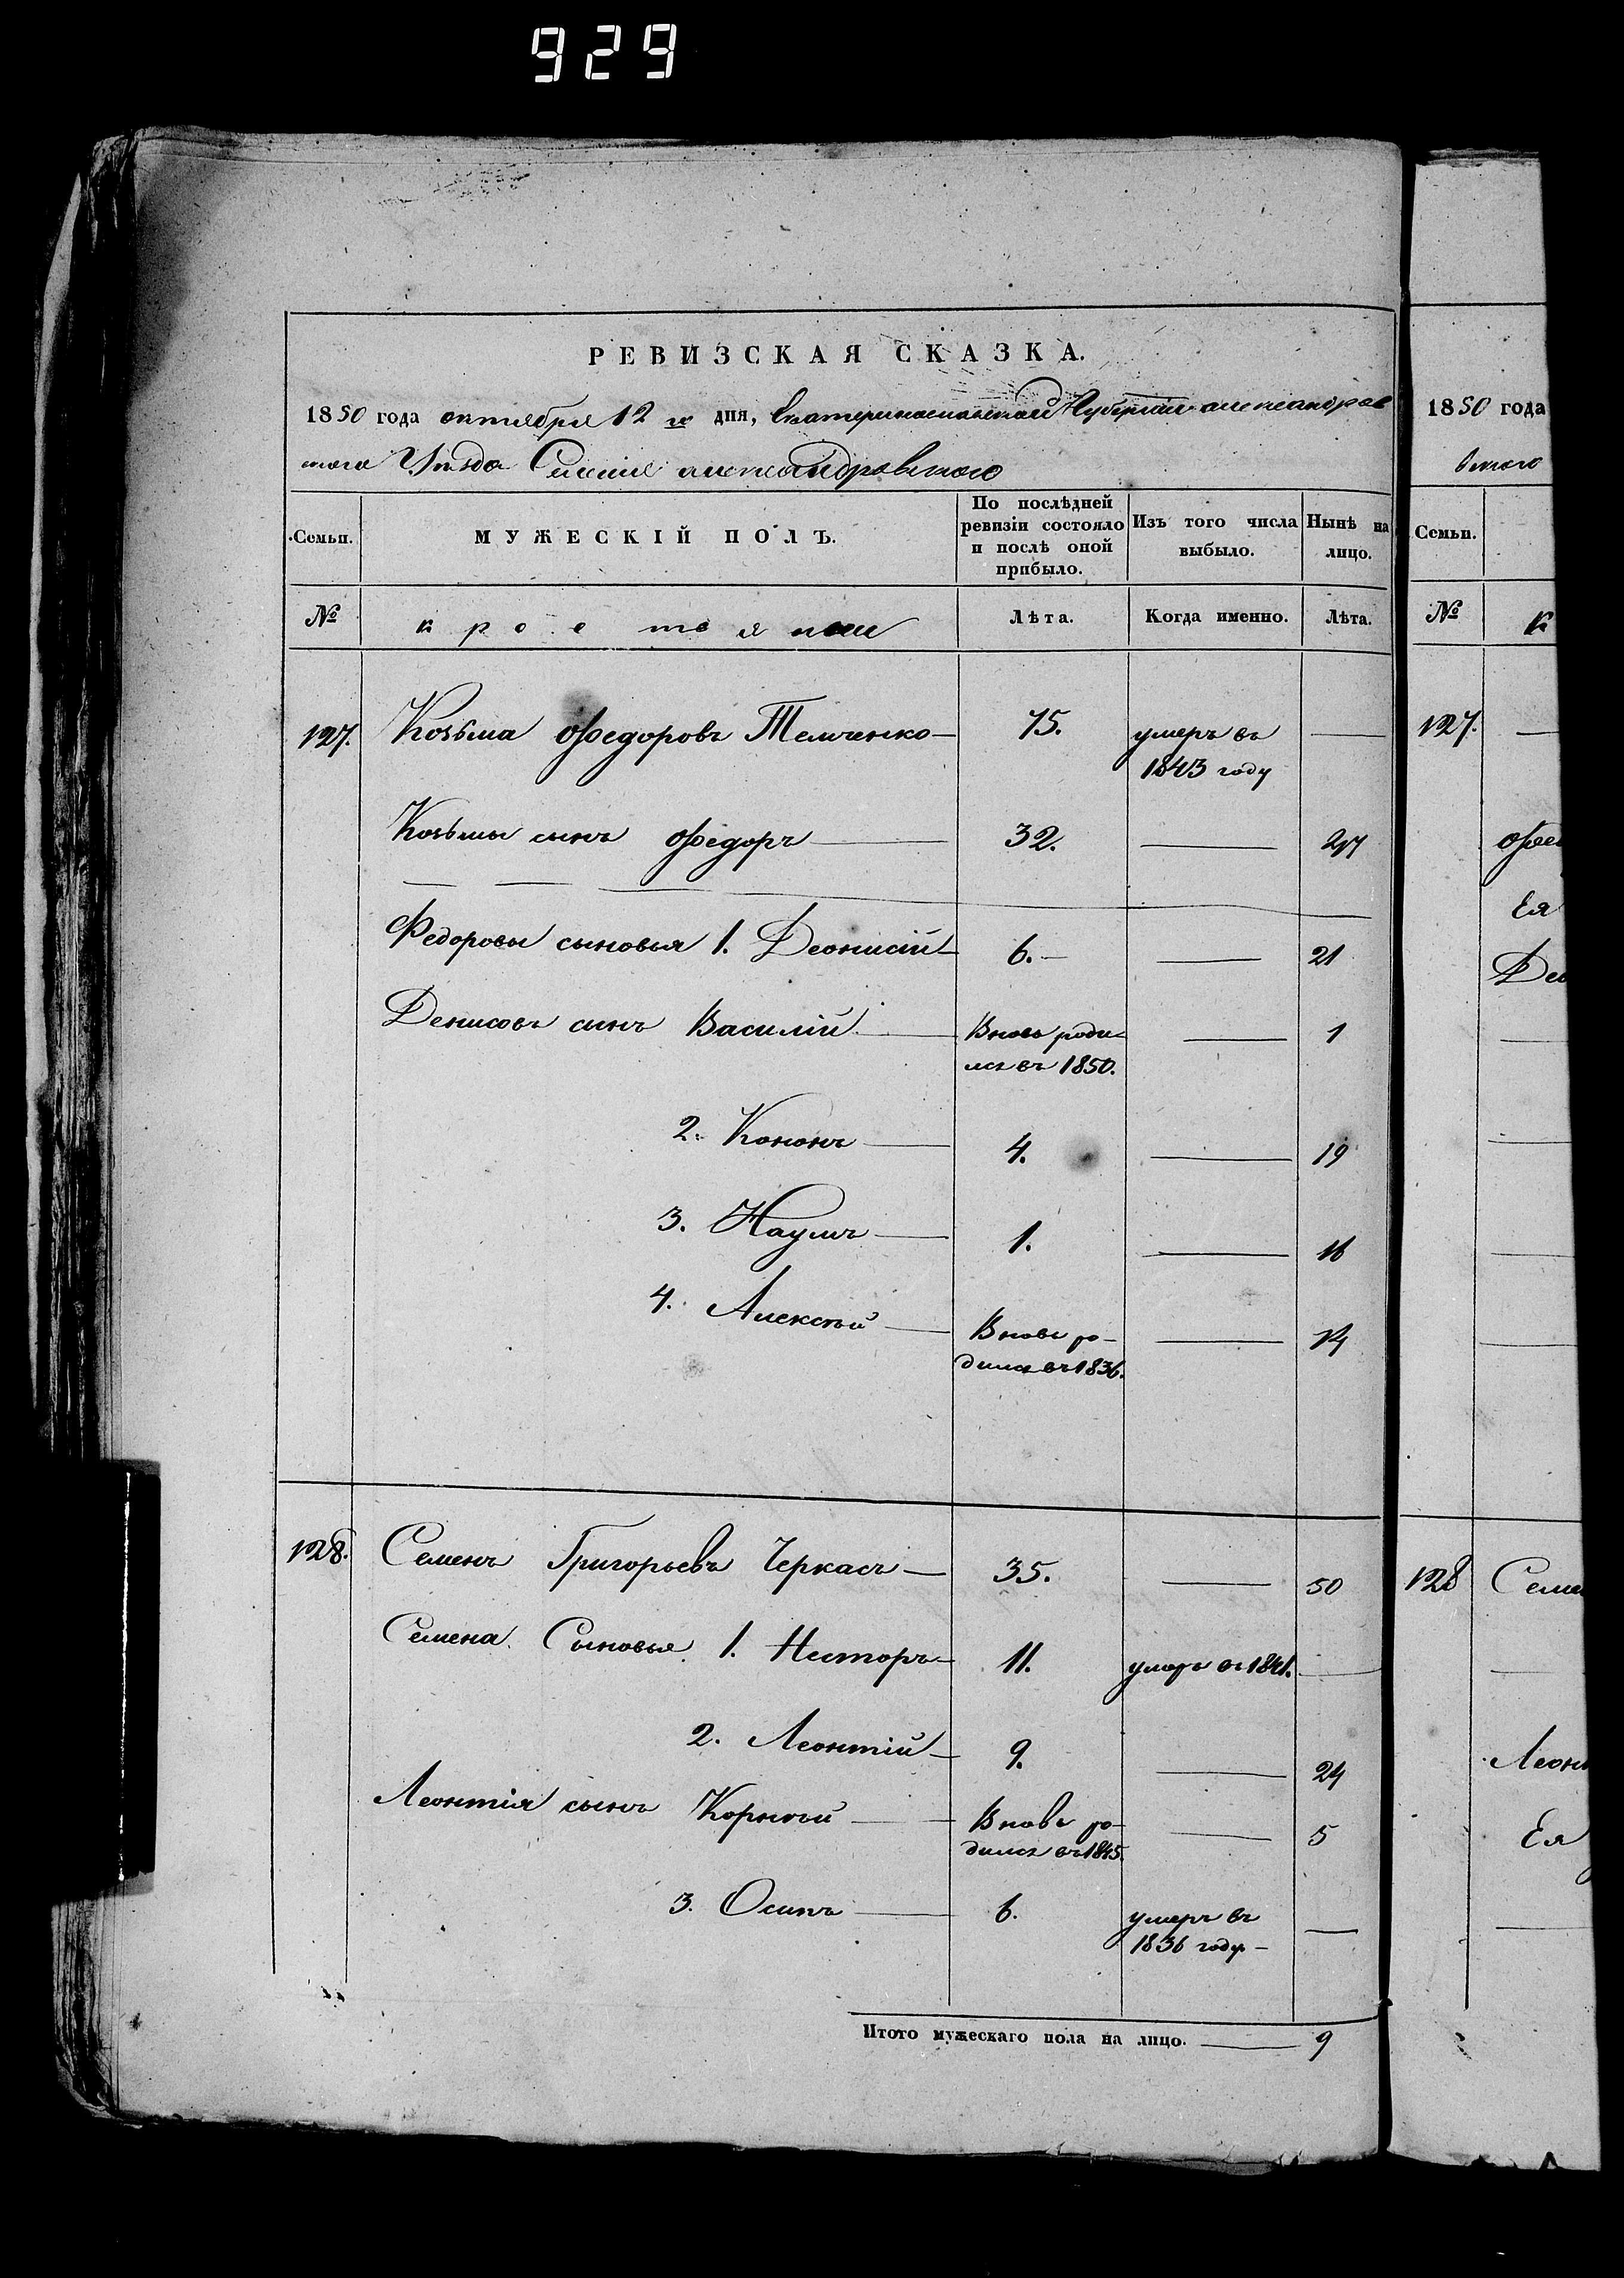 929
РЕВИЗСКАЯ СКАЗКА.
1850 года октября 12 го дня, Екатеринославской Губернии александров
ского Уезда Селения александровского
Семьи.
МУЖЕСКІЙ ПОЛЪ.
По послѣдней ревизіи состояло и послѣ оной прибыло.
Изъ того числа выбыло.
Нынѣ на лицо.
№
крестьяне
Лѣта.
Когда именно.
Лѣта.
127. Козьма Федоровъ Темченко 75. умеръ въ
1843 году
Козьмы сынъ Федоръ 32. 47
Федоровы сыновья 1. Деонисій 6. 21
Денисовъ сынъ Василій Вновь роди-
лся въ 1850. 1
2. Кононъ 4. 19
3. Наумъ 1. 16
4. Алексѣй Вновь ро-
дился въ 1836. 14
128. Семенъ Григорьевъ Черкасъ 35. 50
Семена Сыновья 1. Несторъ 11. умеръ въ 1841.
2. Леонтій 9. 24
Леонтія сынъ Корнѣй Вновь ро-
дился въ 1845. 5
3. Осипъ 6. умеръ въ
1836 году
Итого мужескаго пола на лицо. 9
1850 года
вского
Семьи.
№
К
127.
Фед
Ея
Део
128 Семе
Леон
Ея